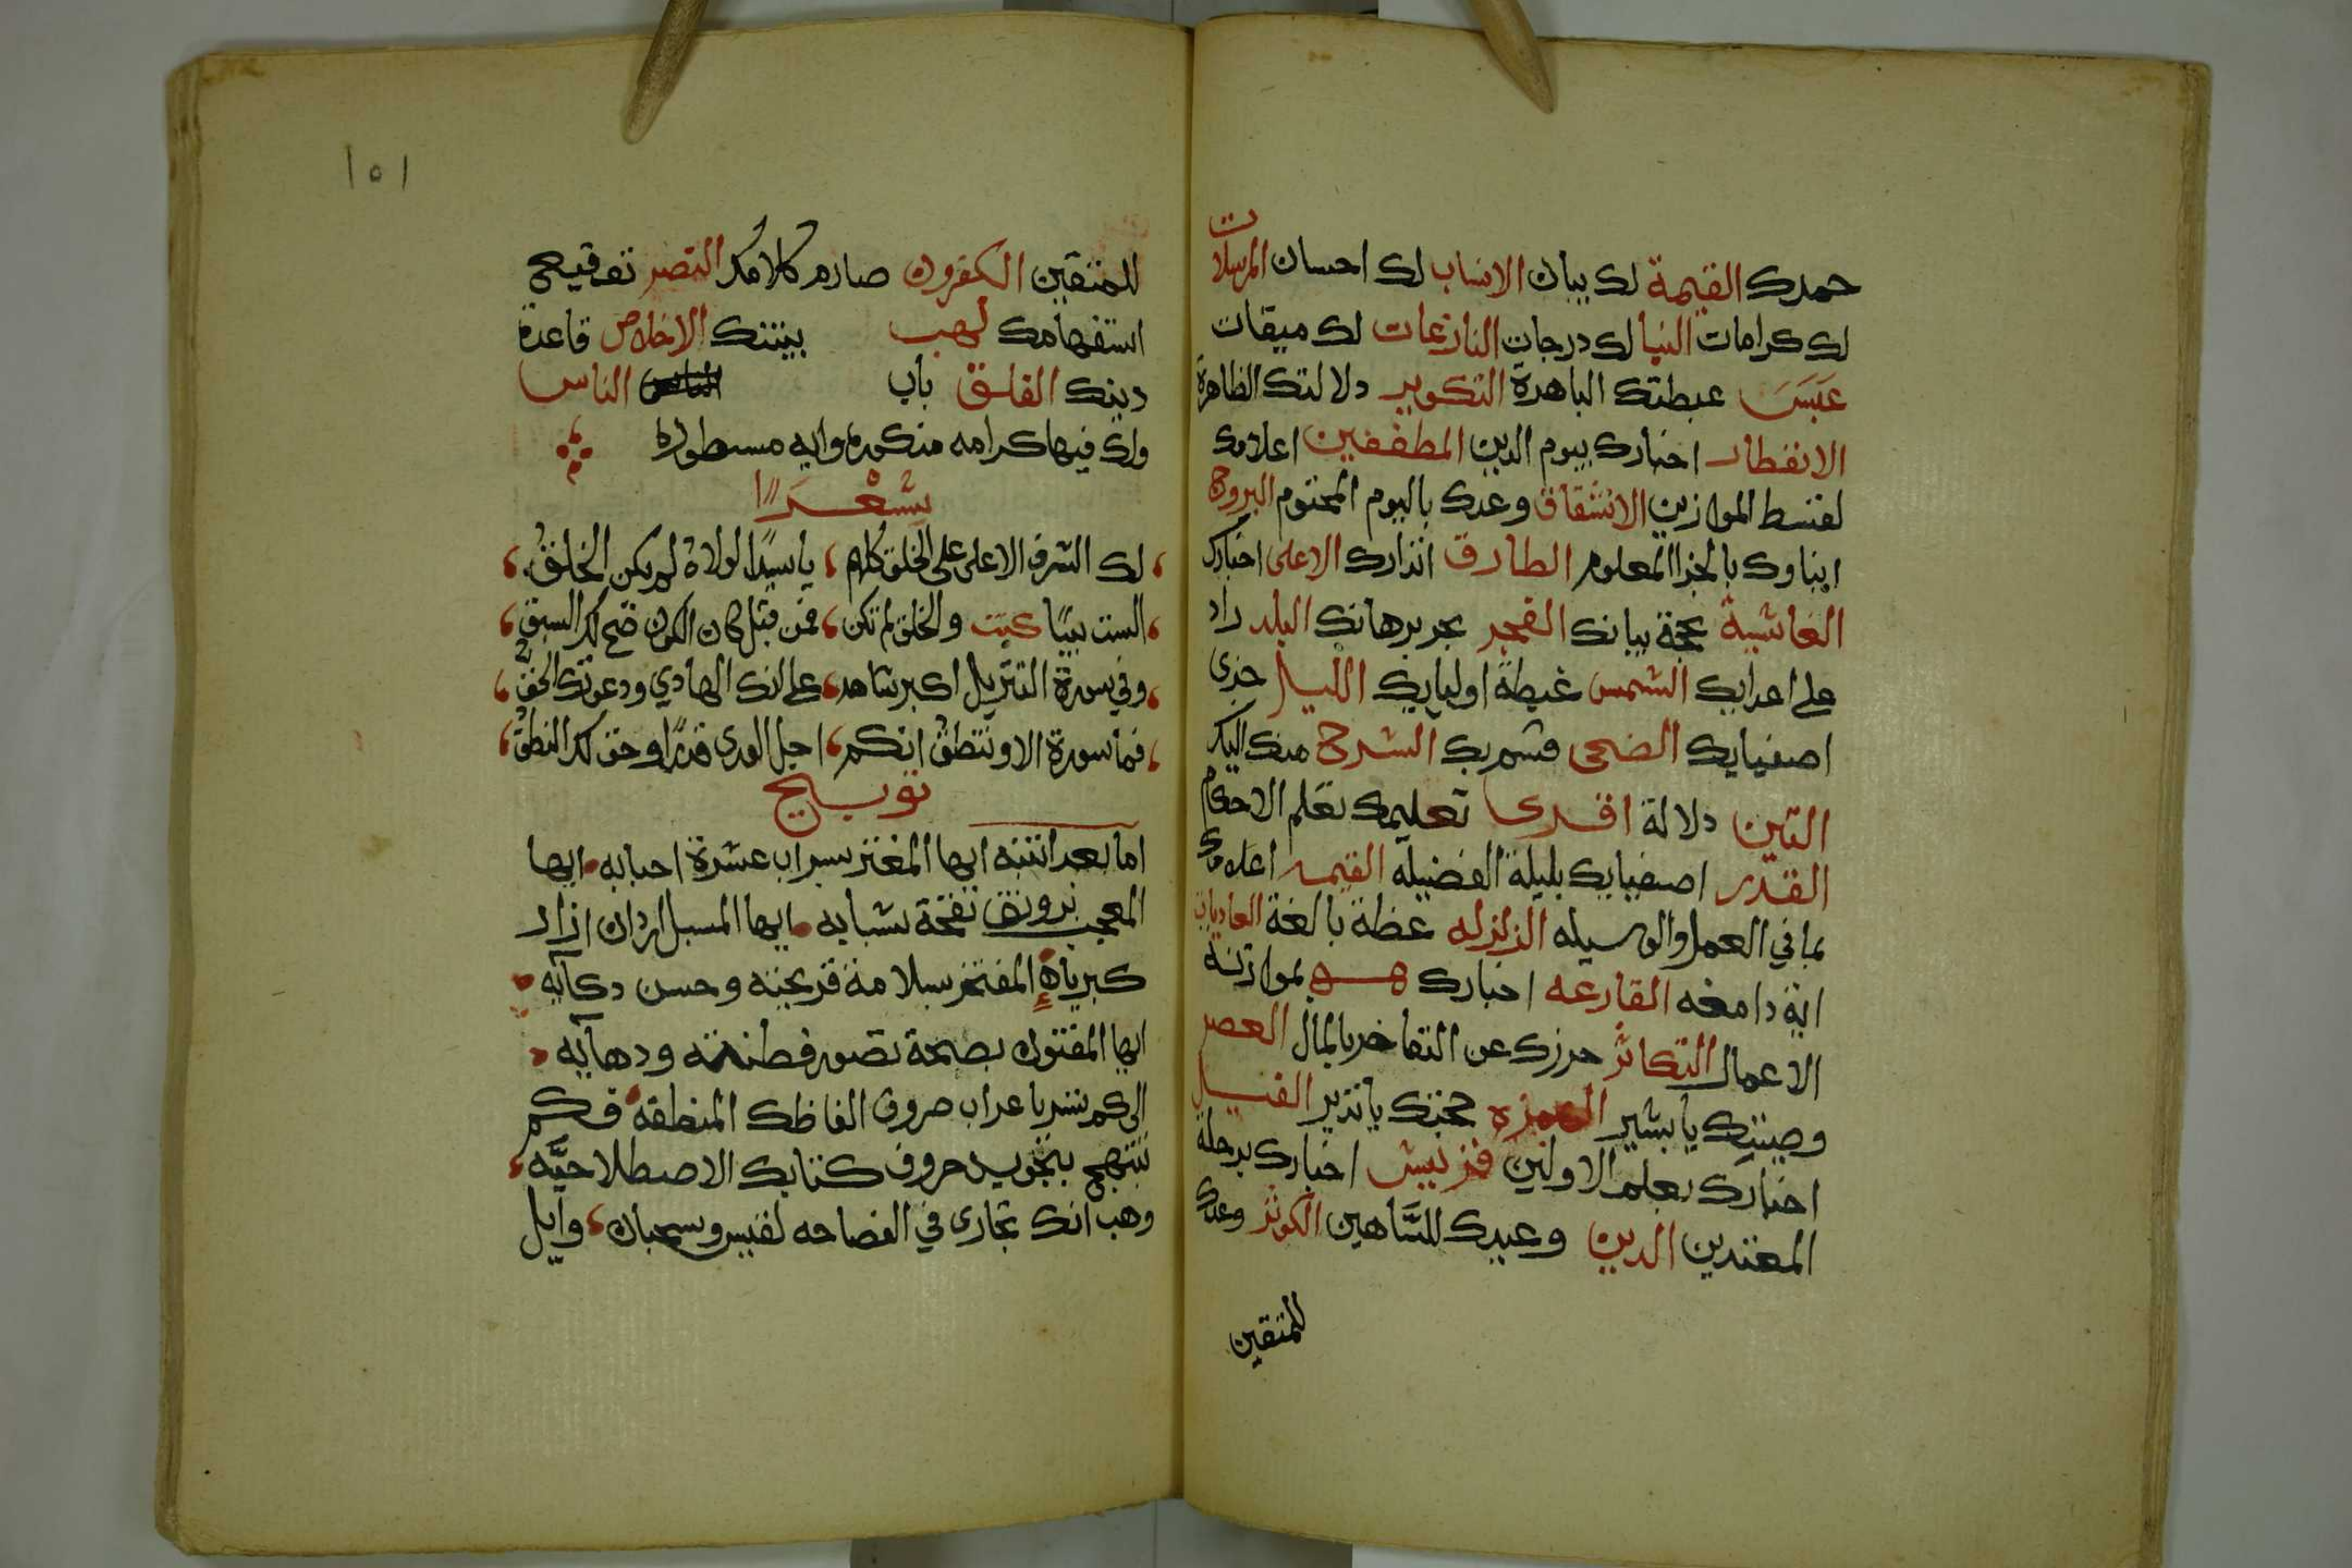 حمدك القيمة لك بيان الانساب لك احسان المرسلات
لك كرامات النبا لك درجات النازعات لك ميقات
عَبَسَ عبطتك الباهرة التكوير دلالتك الظاهرة
الانفطار اخبارك بيوم الدين المطففين اعلامك
لقسط الموازين الانشقاق وعدك باليوم المحتوم البروج
ايناوك بالجزا المعلوم الطارق انذارك الاعلى اخبارك
الغاشية حجة بيانك الفجر بحر برهانك البلد راد
على اعدايك الشمس غبطة اوليايك الليل خزى
اصفيايك الضحى قسم بك الشرح منك اليك
التين دلالة اقرى تعليمك تعلم الاحكام
القدر اصفيايك بليلة الفضيله القيمه اعلامك
بما في العمل والوسيله الزلزله عظة بالغة العاديات
اية دامغه القارعه اخبارك بموازنة
الاعمال التكاثر حرزك عن التفاخر بالمال العصر
وصيتك يا بشير الهمزه حجتك يا نذير الفيل
اخبارك بعلم الاولين قريش اخبارك برحلة
المعتدين الدين وعيدك للسَّاهين الكوثر وعدك
للمتقين
١٥١
للمتقين الكفرون صارم كلامك النصر توقيح
استفهامك لهب بينتك الاخلاص قاعدة
دينك الفلق باب الناس
ولك فيها كرامه مذكوره وايه مسطوره
شعرًا
لك الشرف الاعلى على الخلق كلهم، يا سيدًا لولاه لم يكن الخلق،
الست نبيًا كنت والخلق لم تكن، فمن قبل كان الكون صح لك السبق،
وفي سورة التنزيل اكبر شاهد، على انك الهادي ودعوتك الحق،
فما سورة الا وتنطق انكم، اجل الورى قدرًا وحق لك النطق،
توبيخ
اما بعد انتبه ايها المغتر بسراب عشرة احبابه ايها
المعجب برونق نفحة شبابه ايها المسبل اردان ازار
كبرياه المفتخر بسلامة قريحته وحسن دكآيه
ايها المفتون بصحة تصور فطنته ودهايه
الى كم تسر باعراب صروف الفاظك المنطقه فكم
تبتهج بتجويد حروف كتابك الاصطلاحيَّه،
وهب انك تجارى في الفصاحه لقيس وسحبان، وايل